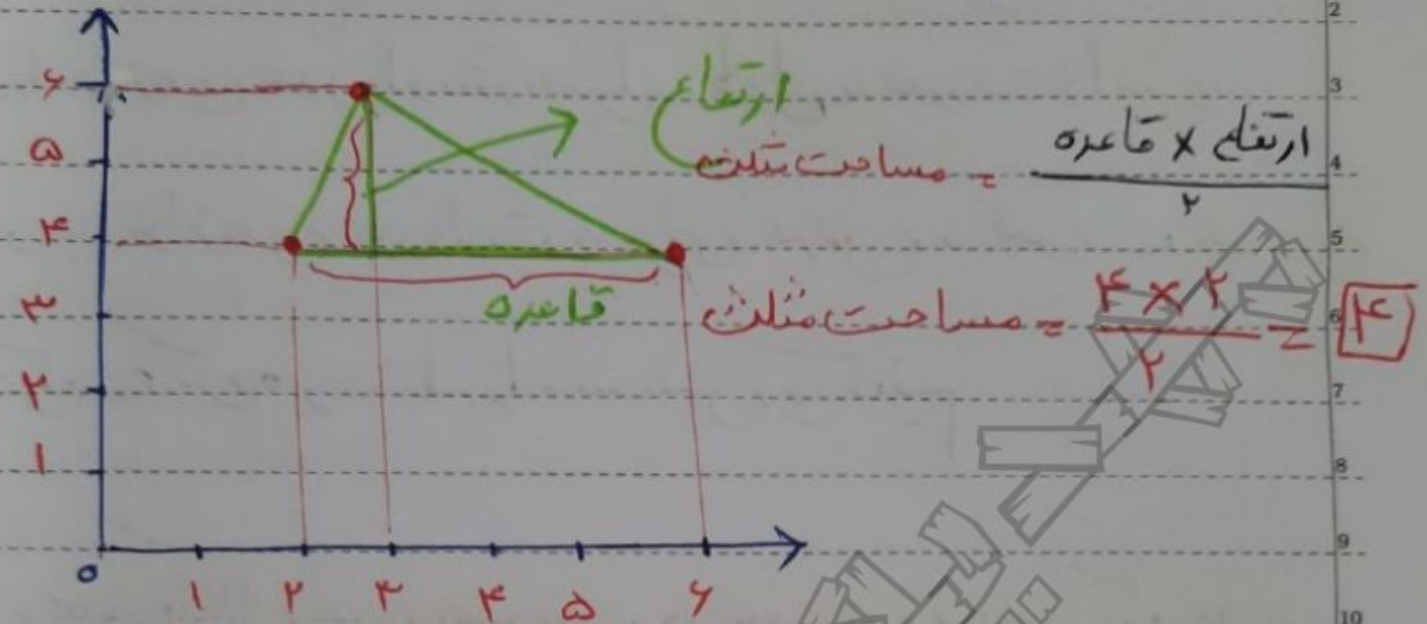 ۶
۵
۴
۳
۲
۱
۰
۱ ۲ ۳ ۴ ۵ ۶
ارتفاع
قاعده
مساحت مثلث = ارتفاع × قاعده / ۲
مساحت مثلث = ۴ × ۲ / ۲ = ۴
2
3
4
5
6
7
8
9
10